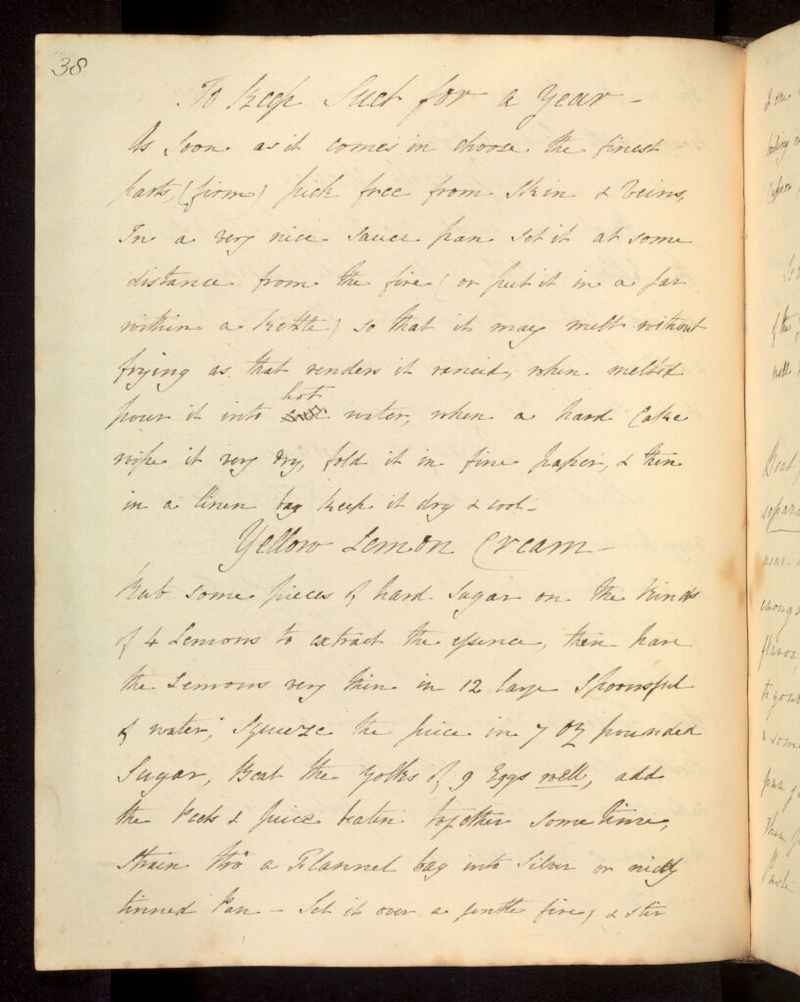 38
To Keep Suet for a Year -
As soon as it comes in choose the finest
parts, (firm) pick free from Skin & Veins,
In a very nice Sauce pan set it at some
distance from the fire (or put it in a Jar
within a Kettle) so that it may melt without
frying as that renders it rancid, when melted
hot
pour it into water, when a hard Cake
wipe it very dry, fold it in fine paper, & then
in a linen bag Keep it dry & cool -
Yellow Lemon Cream -
Rub some pieces of hard Sugar on the Rinds
of 4 Lemons to extract the essence, then pare
the Lemons very thin in 12 large Spoonsful
of water, Squeeze the Juice in 7 Oz pounded
Sugar, Beat the Yolks of 9 Eggs well, add
the Peels & Juice beaten together some time,
Strain thro a Flannel bag into Silver or nicely
tinned Pan - Set it over a gentle fire, & stir